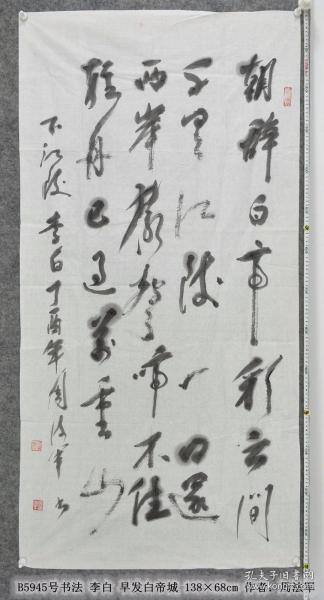 朝辞白帝彩云間
千里江陵一日還
两岸猿声啼不住
轻舟已过萬重山
下江陵 李白 丁酉年 周法军书
B5945号书法 李白 早发白帝城 138×68cm 作者：周法军
孔夫子旧书网